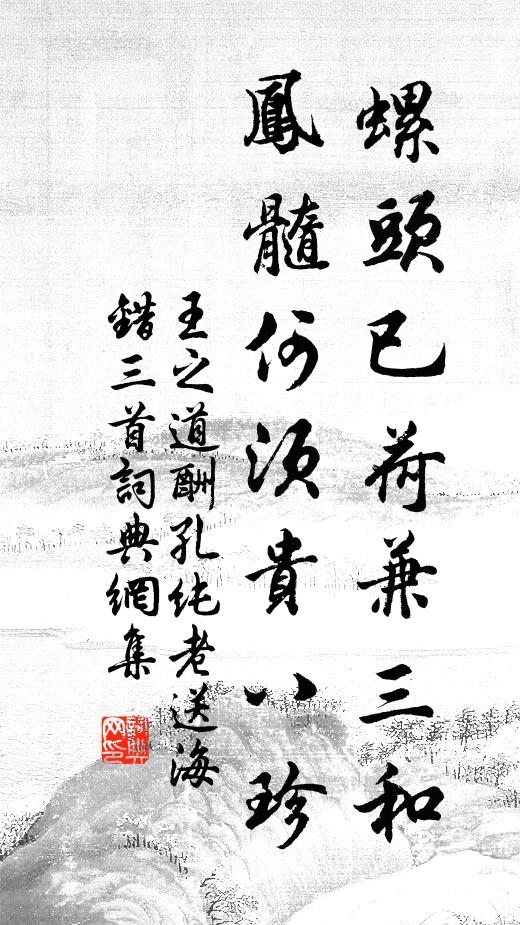 螺頭已荷兼三和
鳳髓何須貴八珍
王之道酬孔純老送海
錯三首詞典網集